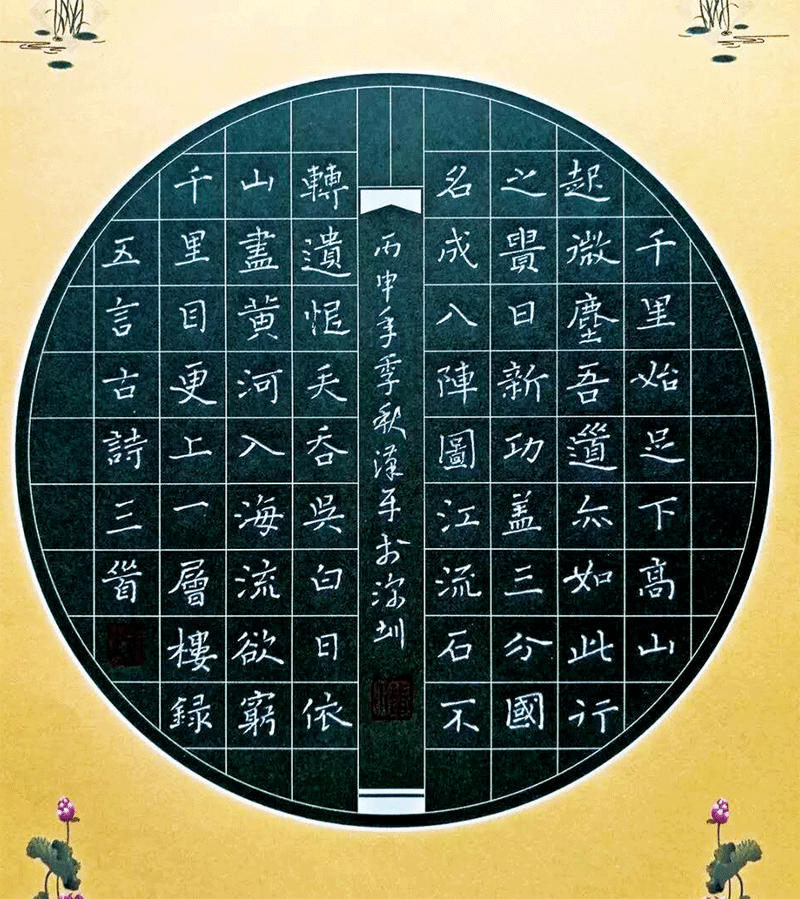 千里始足下高山
起微塵吾道亦如此行
之貴日新功盖三分國
名成八陣圖江流石不
轉遺恨失吞吳白日依
山盡黄河入海流欲窮
千里目更上一層樓録
五言古詩三首
丙申年季秋漢平於深圳